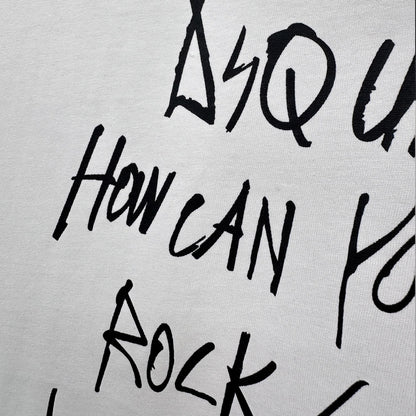 DSQU
HOW CAN YO
ROCK